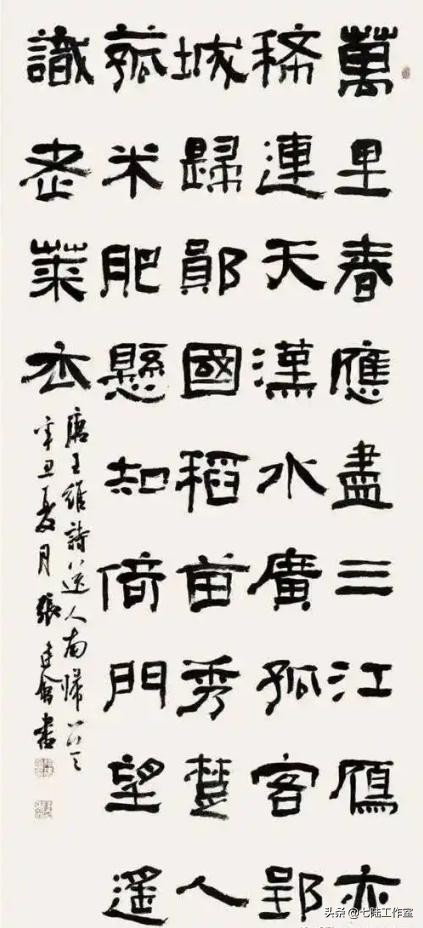 萬里春應盡三江鴈亦
稀連天漢水廣孤客郢
城歸鄖國稻苗秀楚人
菰米肥懸知倚門望遙
識老萊衣
唐王維詩送人南歸
辛丑夏月張建會書
头条 @七陆工作室